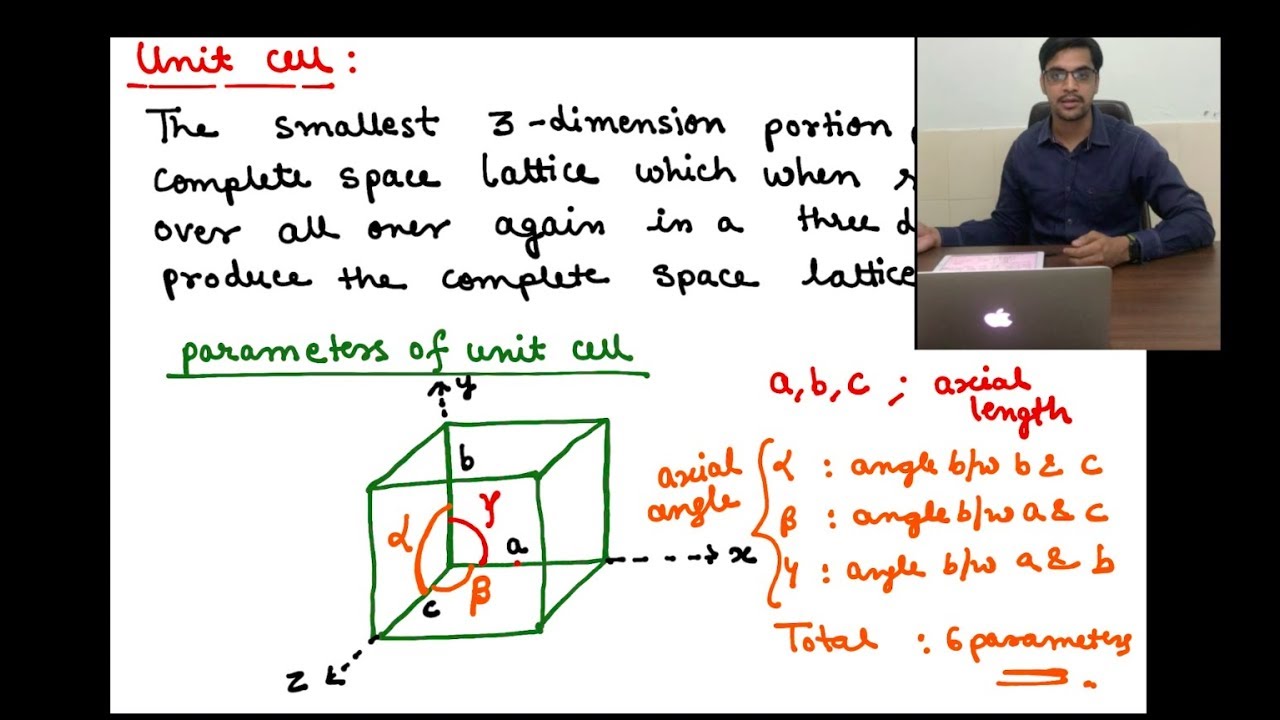 Unit cell :
The smallest 3-dimension portion
complete space lattice which when
over all over again in a three
produce the complete space lattice
parameters of unit cell
y
b
α
γ
a
β
c
x
z
a, b, c ; axial
length
axial
angle
α : angle b/w b & c
β : angle b/w a & c
γ : angle b/w a & b
Total : 6 parameters